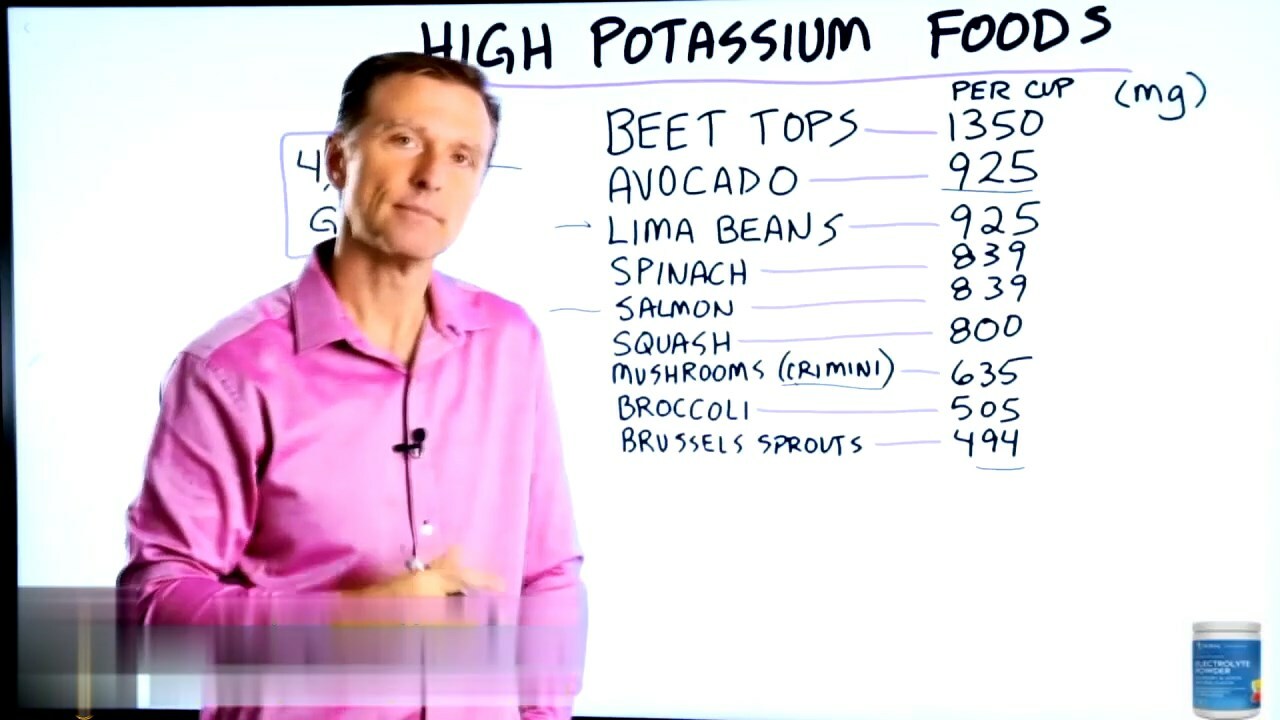 HIGH POTASSIUM FOODS
PER CUP (mg)
BEET TOPS 1350
AVOCADO 925
LIMA BEANS 925
SPINACH 839
SALMON 839
SQUASH 800
MUSHROOMS (CRIMINI) 635
BROCCOLI 505
BRUSSELS SPROUTS 494
4,
G
ELECTROLYTE
POWDER